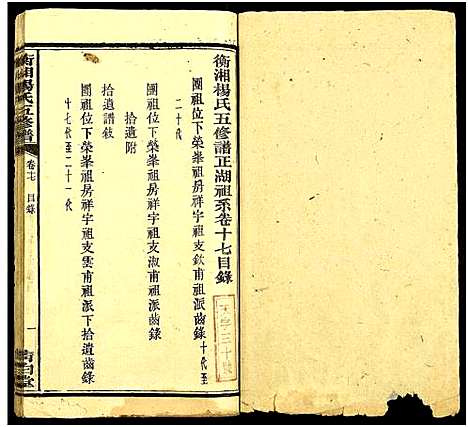 衡湘楊氏五修譜正湖祖系卷十七目錄
團祖位下榮峯祖房祥字祖支欽甫祖派齒錄十代至
二十代
團祖位下榮峯祖房祥字祖支淑甫祖派齒錄
拾遺附
拾遺譜敍
團祖位下榮峯祖房祥字祖支雲甫祖派下拾遺齒錄
十七代至二十一代
衡湘楊氏五修譜
卷十七 目錄
一
字三十號